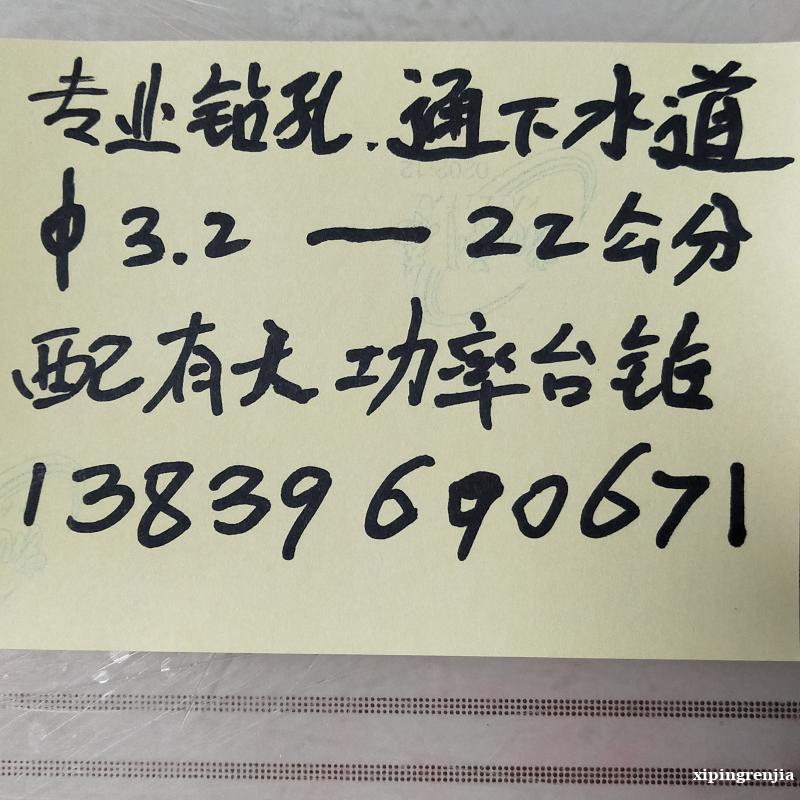 专业钻孔.通下水道
φ3.2 — 22公分
配有大功率台钻
13839690671
xipingrenjia